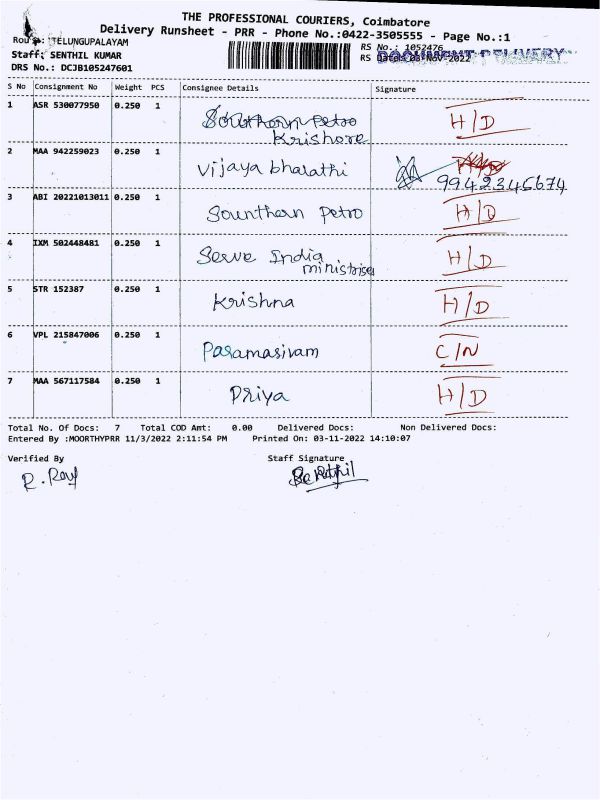 THE PROFESSIONAL COURIERS, Coimbatore
Delivery Runsheet - PRR - Phone No.:0422-3505555 - Page No.:1
TELUNGUPALAYAM
RS No.: 1052476
Staff: SENTHIL KUMAR
RS Date: 03-Nov-2022
DOCUMENT DELIVERY
DRS No.: DCJB105247601
S No Consignment No Weight PCS Consignee Details Signature
1 ASR 530077950 0.250 1 Southern Petro H/D
Krishore
2 MAA 942259023 0.250 1 Vijaya bharathi
9942345674
3 ABI 20221013011 0.250 1 Sounthern Petro H/D
4 IXM 502448481 0.250 1 Serve India H/D
ministrises
5 STR 152387 0.250 1 Krishna H/D
6 VPL 215847006 0.250 1 Paramasivam C/N
7 MAA 567117584 0.250 1 Priya H/D
Total No. Of Docs: 7 Total COD Amt: 0.00 Delivered Docs: Non Delivered Docs:
Entered By :MOORTHYPRR 11/3/2022 2:11:54 PM Printed On: 03-11-2022 14:10:07
Verified By Staff Signature